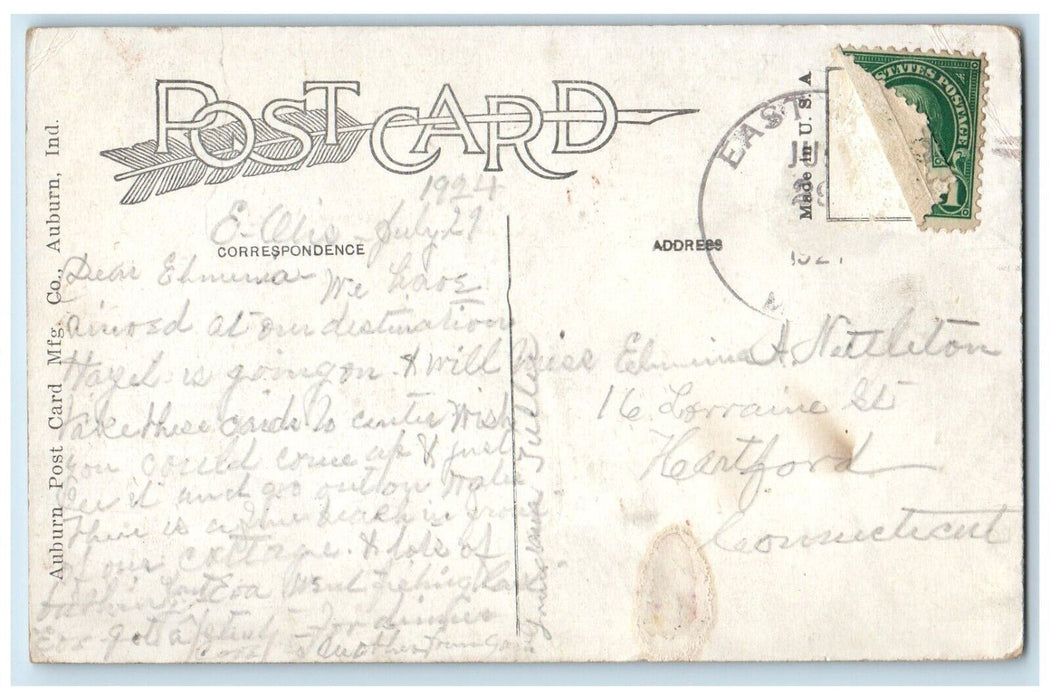 POST CARD
Auburn Post Card Mfg. Co., Auburn, Ind.
CORRESPONDENCE
ADDRESS
Made in U. S. A.
EAST
STATES POSTAGE
1
1924
July 29
Dear Elmina - We have
at our destination
Hazel is going on & will
take these cards to center Wish
you could come up & just
see it and go out on Water
There is a fine beach in front
of our cottage. & lots of
bathing Eva went fishing
for dinner
Miss Elmina A Nettleton
16 Lorraine St
Hartford
Connecticut